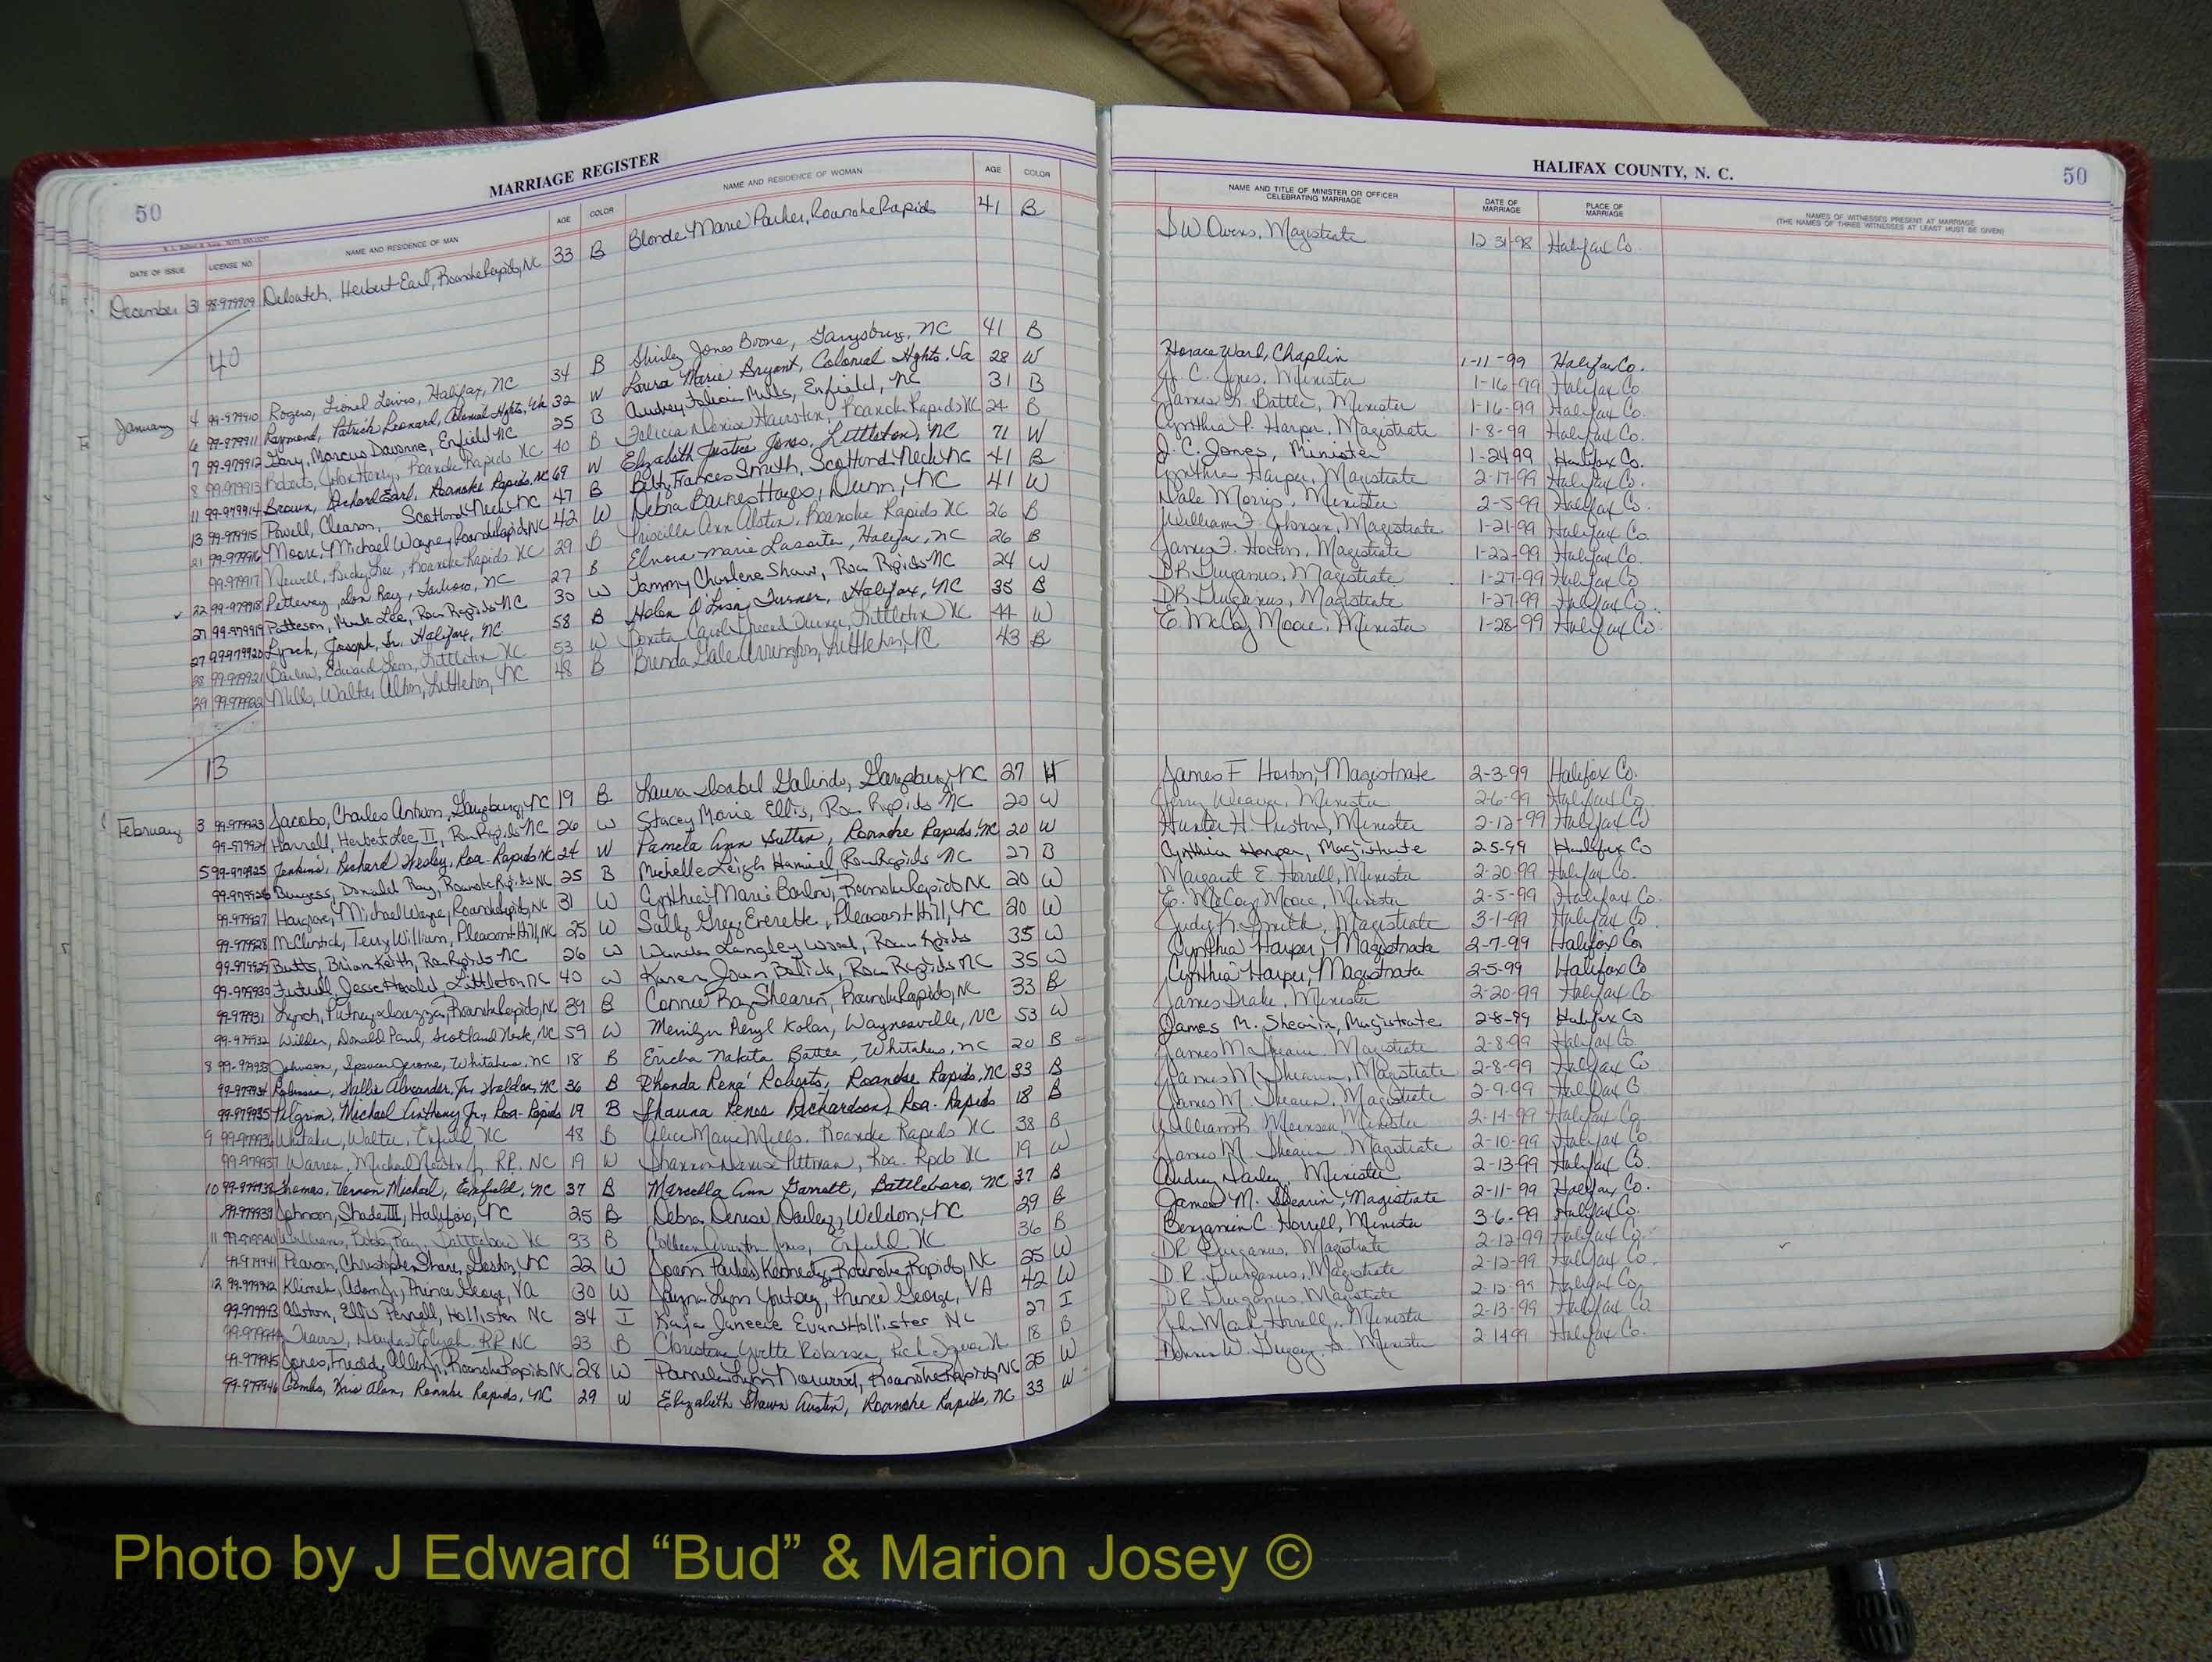 50
MARRIAGE REGISTER
DATE OF ISSUE LICENSE NO NAME AND RESIDENCE OF MAN AGE COLOR NAME AND RESIDENCE OF WOMAN AGE COLOR
December 31 98-979909 Deloatch, Herbert Earl, Roanoke Rapids, NC 33 B Blonde Marie Parker, Roanoke Rapids 41 B
40
January 4 99-979910 Rogers, Lionel Lewis, Halifax, NC 34 B Shirley Jones Boone, Garysburg, NC 41 B
6 99-979911 Raymond, Patrick Leonard, Colonial Hghts, Va 32 W Laura Marie Bryant, Colonial Hghts. Va 28 W
7 99-979912 Gary, Marcus Davonne, Enfield NC 25 B Audrey Felicia Mills, Enfield, NC 31 B
8 99-979913 Roberts, John Henry, Roanoke Rapids NC 40 B Felicia Denise Hairston, Roanoke Rapids NC 24 B
11 99-979914 Brown, Richard Earl, Roanoke Rapids, NC 69 W Elizabeth Justice Jones, Littleton, NC 71 W
13 99-979915 Powell, Clearon, Scotland Neck, NC 47 B Betty Frances Smith, Scotland Neck NC 41 B
21 99-979916 Moore, Michael Wayne, Roanoke Rapids, NC 42 W Debra Barnes Hayes, Dunn, NC 41 W
99-979917 Newell, Ricky Lee, Roanoke Rapids NC 29 B Priscilla Ann Alston, Roanoke Rapids NC 26 B
22 99-979918 Petteway, Don Ray, Tarboro, NC 27 B Elnora Marie Lassiter, Halifax, NC 26 B
27 99-979919 Patterson, Mark Lee, Roa Rapids NC 30 W Tammy Charlene Shaw, Roa Rapids NC 24 W
27 99-979920 Lynch, Joseph, Jr. Halifax, NC 58 B Helen O'Lisa Turner, Halifax, NC 35 B
28 99-979921 Barlow, Edward Leon, Littleton NC 53 W Carol Littleton NC 44 W
29 99-979922 Mills, Walter Alton, Littleton, NC 48 B Brenda Gale Arrington, Littleton, NC 43 B
13
February 3 99-979923 Jacobs, Charles Antwan, Garysburg, NC 19 B Laura Isabel Galindo, Garysburg, NC 27 H
99-979924 Harrell, Herbert Lee II, Roa Rapids NC 26 W Stacey Marie Ellis, Roa Rapids NC 20 W
5 99-979925 Jenkins, Richard Wesley, Roa-Rapids NC 24 W Pamela Ann Sutton, Roanoke Rapids, NC 20 W
99-979926 Burgess, Donald Ray, Roanoke Rapids NC 25 B Michelle Leigh Hamiel, Roa Rapids NC 27 B
99-979927 Hargrove, Michael Wayne, Roanoke Rapids, NC 31 W Cynthia Marie Barlow, Roanoke Rapids NC 20 W
99-979928 McClintick, Terry William, Pleasant Hill, NC 25 W Sally Grey Everette, Pleasant Hill, NC 20 W
99-979929 Butts, Brian Keith, Roa Rapids NC 26 W Wanda Langley Wood, Roa Rapids 35 W
99-979930 Futrell, Jesse Harold, Littleton NC 40 W Karen Joan Roa Rapids NC 35 W
99-979931 Lynch, Roanoke Rapids, NC 39 B Connie Ray Shearin, Roanoke Rapids, NC 33 B
99-979932 Wilder, Donald Paul, Scotland Neck, NC 59 W Merrilyn Meryl Kolar, Waynesville, NC 53 W
8 99-979933 Johnson, Spencer Jerome, Whitakers, NC 18 B Ericka Nakita Battle, Whitakers, NC 20 B
99-979934 Robinson, Hallie Alexander, Jr. Weldon, NC 36 B Rhonda Rena' Roberts, Roanoke Rapids, NC 33 B
99-979935 Pilgrim, Michael Anthony Jr, Roa-Rapids 19 B Shauna Renee Richardson, Roa-Rapids 18 B
9 99-979936 Whitaker, Walter, Enfield NC 48 B Alice Marie Mills, Roanoke Rapids NC 38 B
99-979937 Warren, Michael Newton Jr, RR. NC 19 W Shannon Denise Pittman, Roa. Rpds NC 19 W
10 99-979938 Thomas, Vernon Michael, Enfield, NC 37 B Marcella Ann Garrett, Battleboro, NC 37 B
99-979939 Johnson, Shade III, Halifax, NC 25 B Debra Denise Dailey, Weldon, NC 29 B
11 99-979940 Williams, Bobby Ray, Battleboro NC 33 B Colleen Arrington Jones, Enfield NC 36 B
99-979941 Pearson, Christopher Shane, Gaston, NC 22 W Joann Parker Kennedy, Roanoke Rapids, NC 25 W
12 99-979942 Klimek, Adam Jr, Prince George, VA 30 W Jayna Lynn Prince George, VA 42 W
99-979943 Alston, Ellis Pernell, Hollister NC 24 I Kaja Janeese Evans Hollister NC 27 I
99-979944 Travis, RR NC 23 B Christina Yvette Robinson, Rich Square NC 18 B
99-979945 Jones, Freddy Allen Jr, Roanoke Rapids NC 28 W Pamela Lynn Norwood, Roanoke Rapids, NC 25 W
99-979946 Combs, Kris Alan, Roanoke Rapids, NC 29 W Elizabeth Shawn Austin, Roanoke Rapids, NC 33 W
HALIFAX COUNTY, N. C.
50
NAME AND TITLE OF MINISTER OR OFFICER CELEBRATING MARRIAGE DATE OF MARRIAGE PLACE OF MARRIAGE NAMES OF WITNESSES PRESENT AT MARRIAGE (THE NAMES OF THREE WITNESSES AT LEAST MUST BE GIVEN)
S W Owens, Magistrate 12-31-98 Halifax Co.
Horace Ward, Chaplin 1-11-99 Halifax Co.
J. C. Jones, Minister 1-16-99 Halifax Co.
James L. Battle, Minister 1-16-99 Halifax Co.
Cynthia P. Harper, Magistrate 1-8-99 Halifax Co.
J. C. Jones, Minister 1-24-99 Halifax Co.
Cynthia Harper, Magistrate 2-17-99 Halifax Co.
Dale Morris, Minister 2-5-99 Halifax Co.
William F. Johnson, Magistrate 1-21-99 Halifax Co.
James F. Horton, Magistrate 1-22-99 Halifax Co.
DR Gurganus, Magistrate 1-27-99 Halifax Co
DR Gurganus, Magistrate 1-27-99 Halifax Co.
E. McCoy Moore, Minister 1-28-99 Halifax Co.
James F Horton, Magistrate 2-3-99 Halifax Co.
Jerry Weaver, Minister 2-6-99 Halifax Co.
Hunter H. Preston, Minister 2-12-99 Halifax Co
Cynthia Harper, Magistrate 2-5-99 Halifax Co
Margaret E. Horrell, Minister 2-20-99 Halifax Co.
E. McCoy Moore, Minister 2-5-99 Halifax Co.
Judy K. Smith, Magistrate 3-1-99 Halifax Co.
Cynthia Harper, Magistrate 2-7-99 Halifax Co.
Cynthia Harper, Magistrate 2-5-99 Halifax Co
James Drake, Minister 2-20-99 Halifax Co.
James M. Shearin, Magistrate 2-8-99 Halifax Co
James M Shearin, Magistrate 2-8-99 Halifax Co
James M. Shearin, Magistrate 2-8-99 Halifax Co
James M. Shearin, Magistrate 2-9-99 Halifax Co
William Minister 2-14-99 Halifax Co
James M. Shearin Magistrate 2-10-99 Halifax Co
Audrey Minister 2-13-99 Halifax Co.
James M. Shearin, Magistrate 2-11-99 Halifax Co.
Benjamin C. Horrell, Minister 3-6-99 Halifax Co.
DR Gurganus, Magistrate 2-12-99 Halifax Co.
D.R. Gurganus, Magistrate 2-12-99 Halifax Co.
DR Gurganus, Magistrate 2-12-99 Halifax Co.
John Mark Horrell, Minister 2-13-99 Halifax Co.
W. Minister 2-14-99 Halifax Co.
Photo by J Edward “Bud” & Marion Josey ©